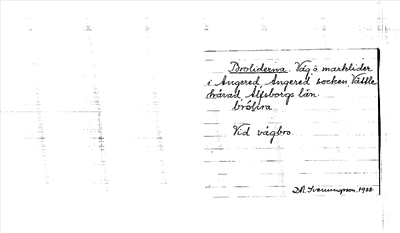 Broliderna. Väg o marklider
i Angered, Angered socken, Vättle
härad Älfsborgs län.
brólira
Vid vägbro.
1922